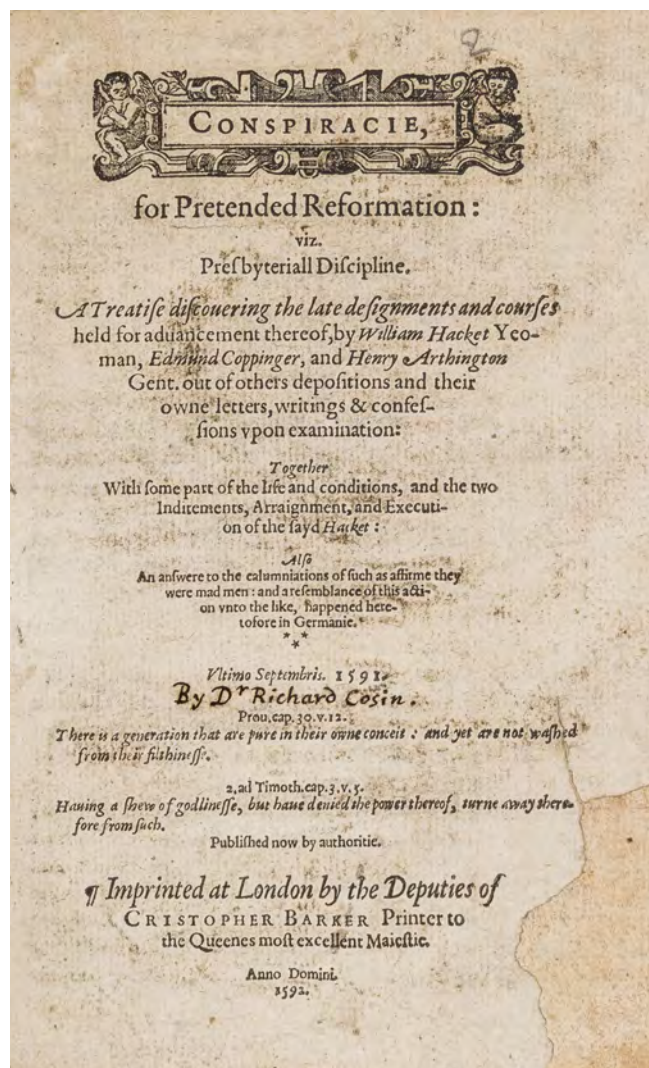 2
CONSPIRACIE,
for Pretended Reformation:
viz.
Presbyteriall Diſcipline.
A Treatiſe diſcouering the late deſignments and courſes
held for aduancement thereof, by William Hacket Yeo-
man, Edmund Coppinger, and Henry Arthington
Gent. out of others depoſitions and their
owne letters, writings & confeſ-
ſions vpon examination:
Together
With ſome part of the life and conditions, and the two
Inditements, Arraignment, and Executi-
on of the ſayd Hacket:
Alſo
An anſwere to the calumniations of ſuch as affirme they
were mad men: and a reſemblance of this acti-
on vnto the like, happened here-
tofore in Germanie.
***
Vltimo Septembris. 1591.
By Dr Richard Cosin.
Prou. cap. 30. v. 12.
There is a generation that are pure in their owne conceit: and yet are not waſhed
from their filthineſſe.
2. ad Timoth. cap. 3. v. 5.
Hauing a ſhew of godlineſſe, but haue denied the power thereof, turne away there-
fore from ſuch.
Publiſhed now by authoritie.
¶ Imprinted at London by the Deputies of
CRISTOPHER BARKER Printer to
the Queenes moſt excellent Maieſtie.
Anno Domini.
1592.